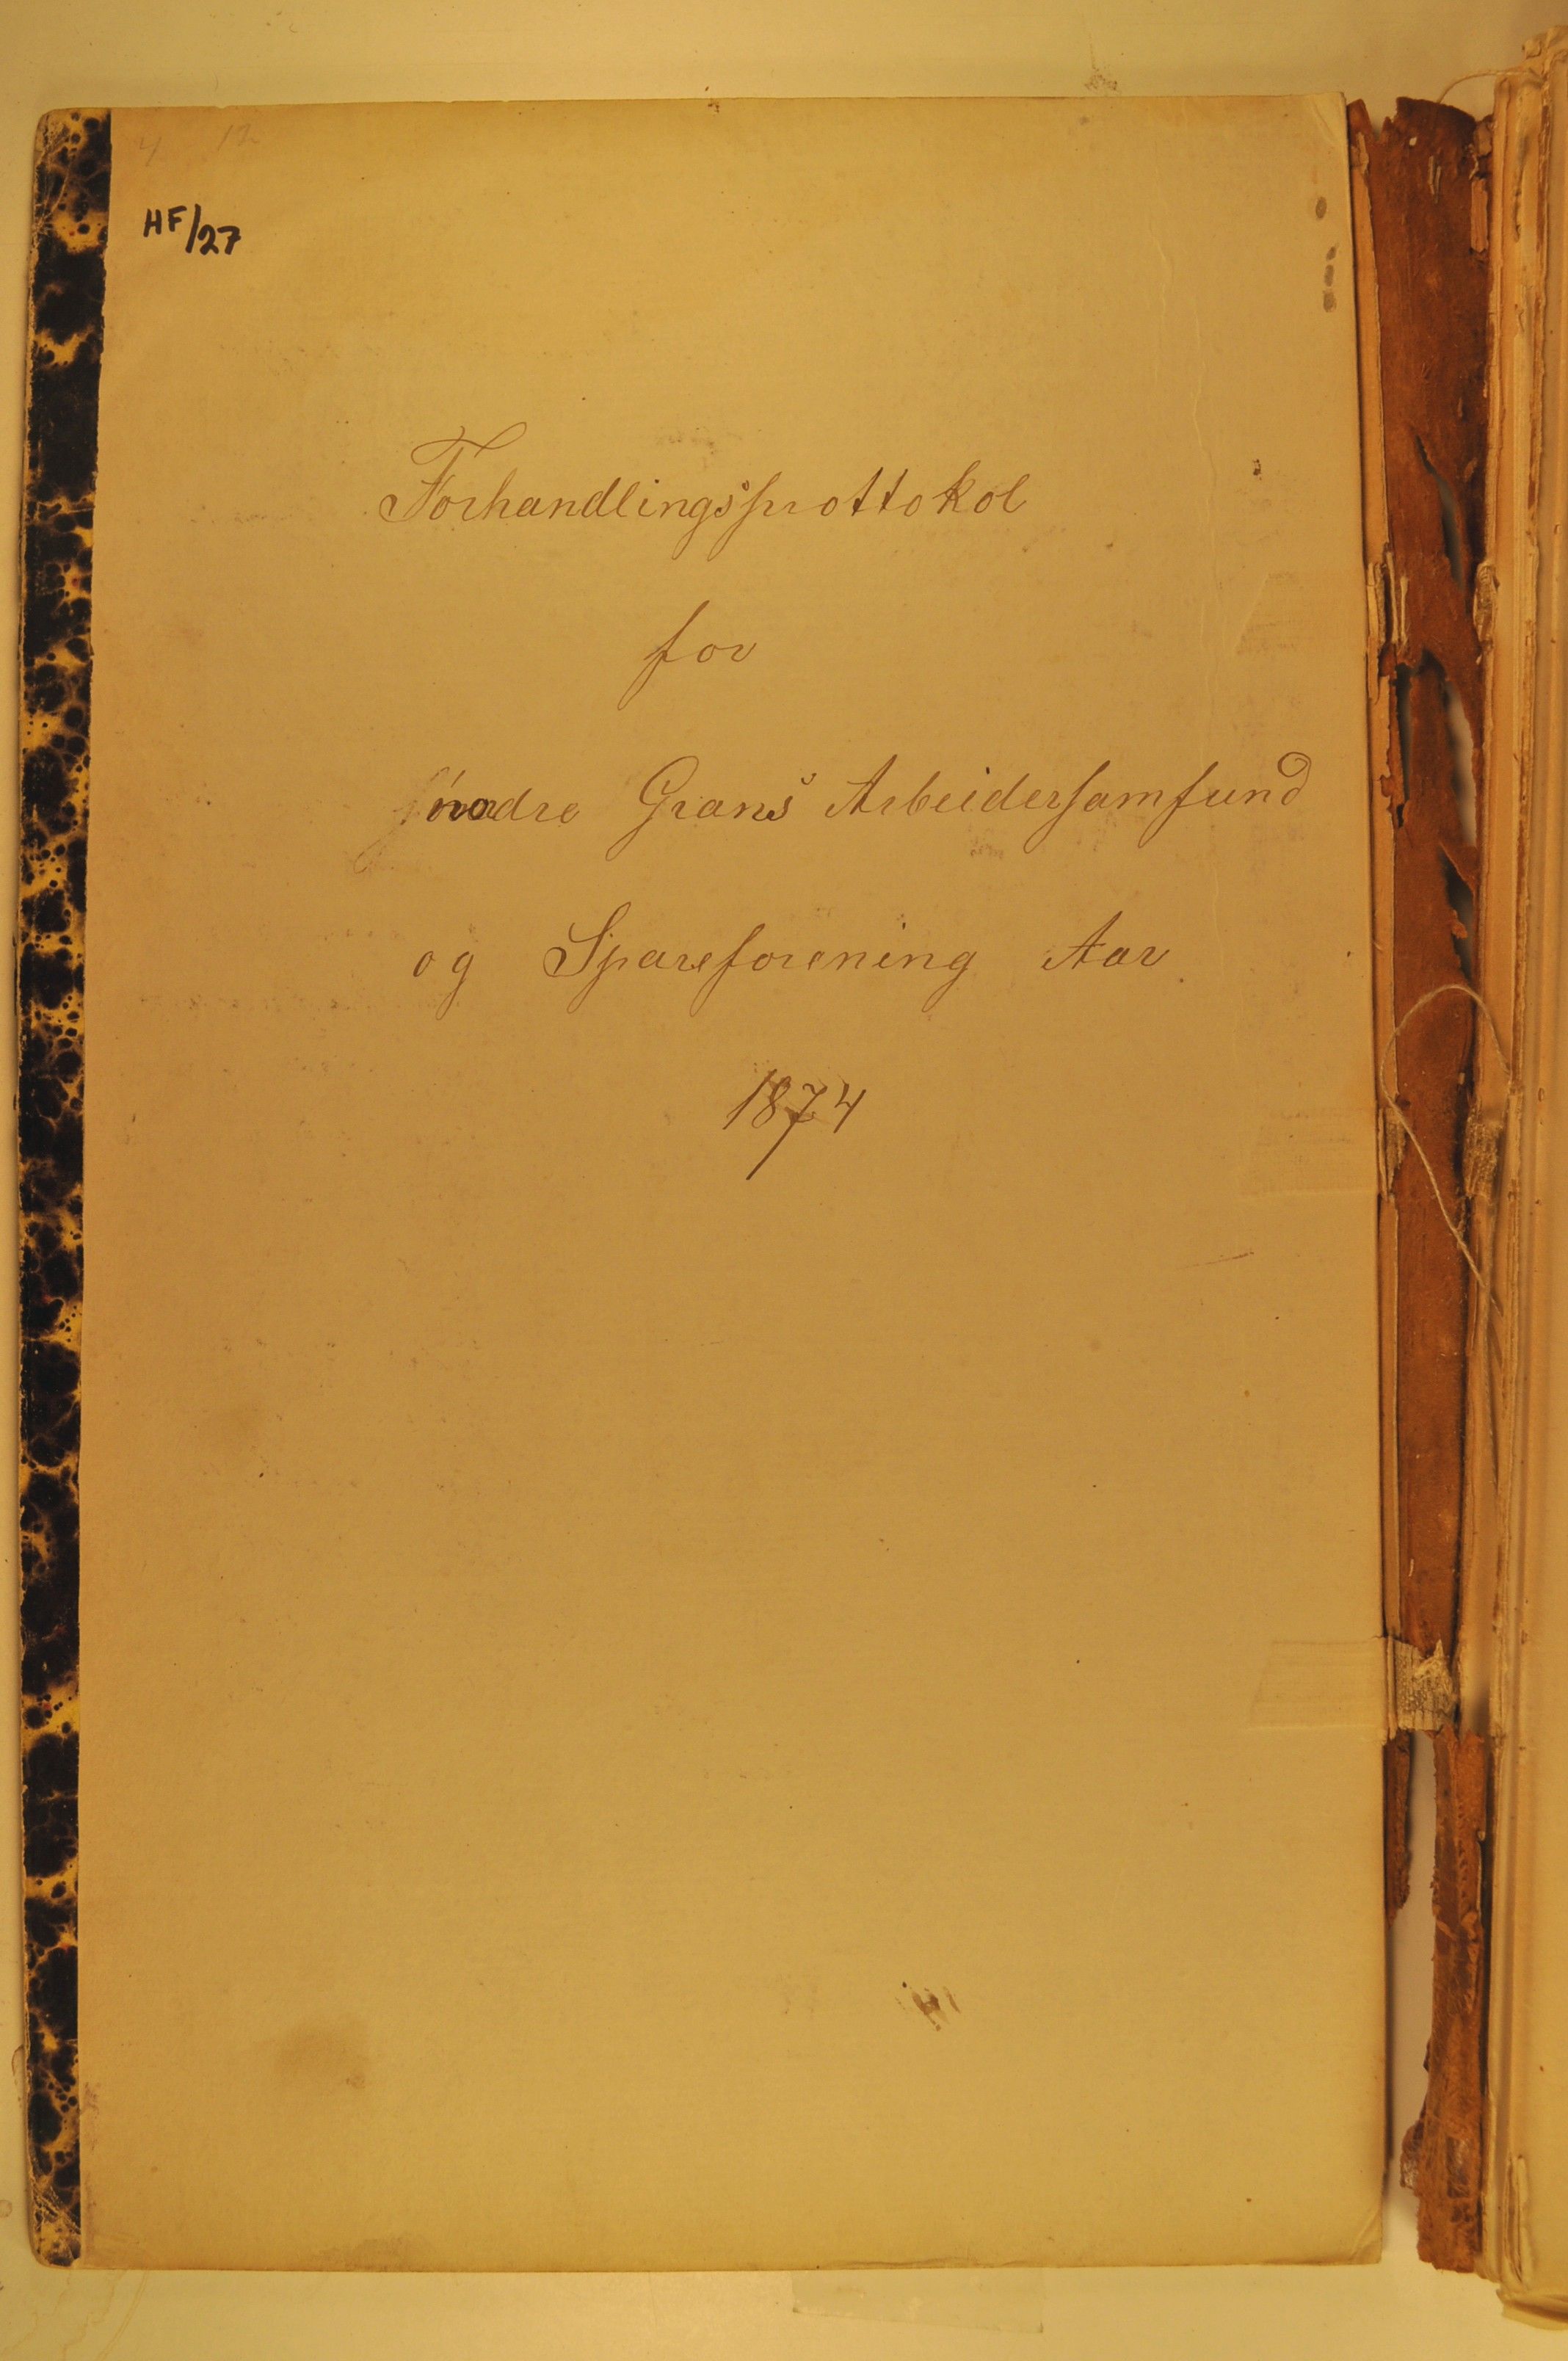 HF/27
Forhandlingsprottokol
for
Grans Arbeidersamfund
og Spareforening Aar
1874